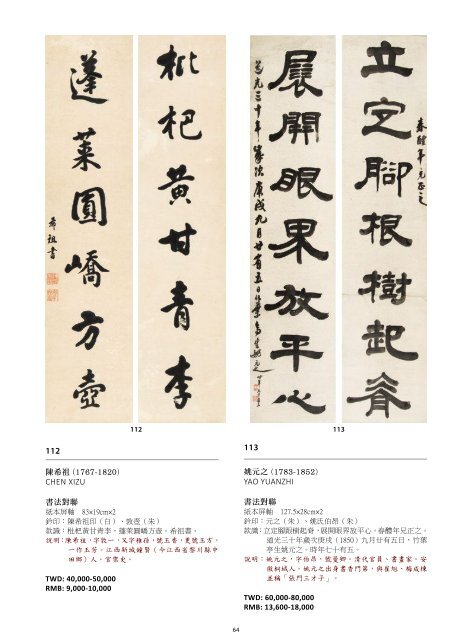 枇杷黃甘青李
蓬萊圓嶠方壺
希祖書
立定腳根樹起脊
春醴年兄正之
展開眼界放平心
道光三十年歲次庚戌九月廿有五日竹葉亭生姚元之
112
113
112
陳希祖（1767-1820）
CHEN XIZU
書法對聯
紙本屏軸　83×19cm×2
鈐印：陳希祖印（白）、敦壹（朱）
款識：枇杷黃甘青李，蓬萊圓嶠方壺。希祖書。
說明：陳希祖，字敦一，又字稚孫，號玉香，更號玉方，
一作玉芳。江西新城鐘賢（今江西省黎川縣中
田鄉）人。官御史。
TWD: 40,000-50,000
RMB: 9,000-10,000
113
姚元之（1783-1852）
YAO YUANZHI
書法對聯
紙本屏軸　127.5×28cm×2
鈐印：元之（朱）、姚氏伯昂（朱）
款識：立定腳根樹起脊，展開眼界放平心。春醴年兄正之。
道光三十年歲次庚戌（1850）九月廿有五日，竹葉
亭生姚元之。時年七十有五。
說明：姚元之，字伯昂，號薦卿，清代官員、書畫家。安
徽桐城人。姚元之出身書香門第，與崔旭、梅成棟
並稱「張門三才子」。
TWD: 60,000-80,000
RMB: 13,600-18,000
64